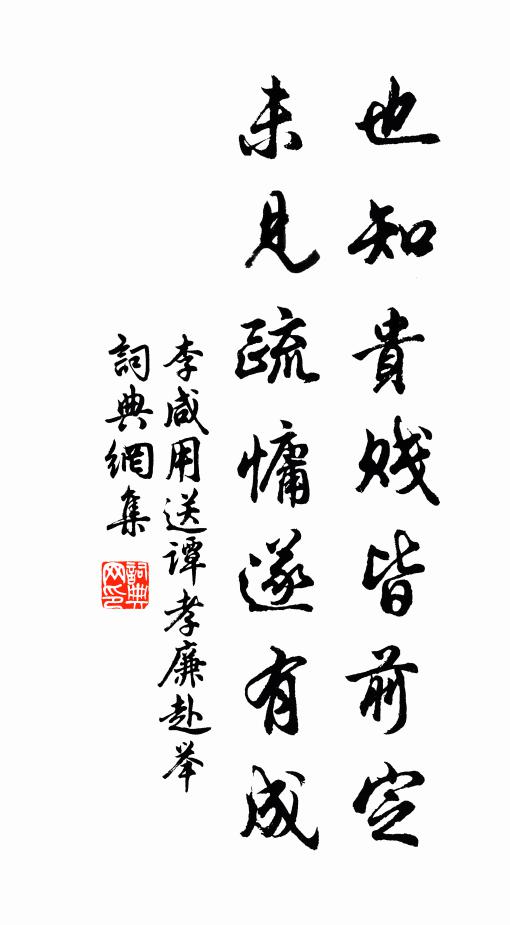 也知貴賤皆前定
未見疏慵遂有成
李咸用送谭孝廉赴举
詞典網集
詞典网印